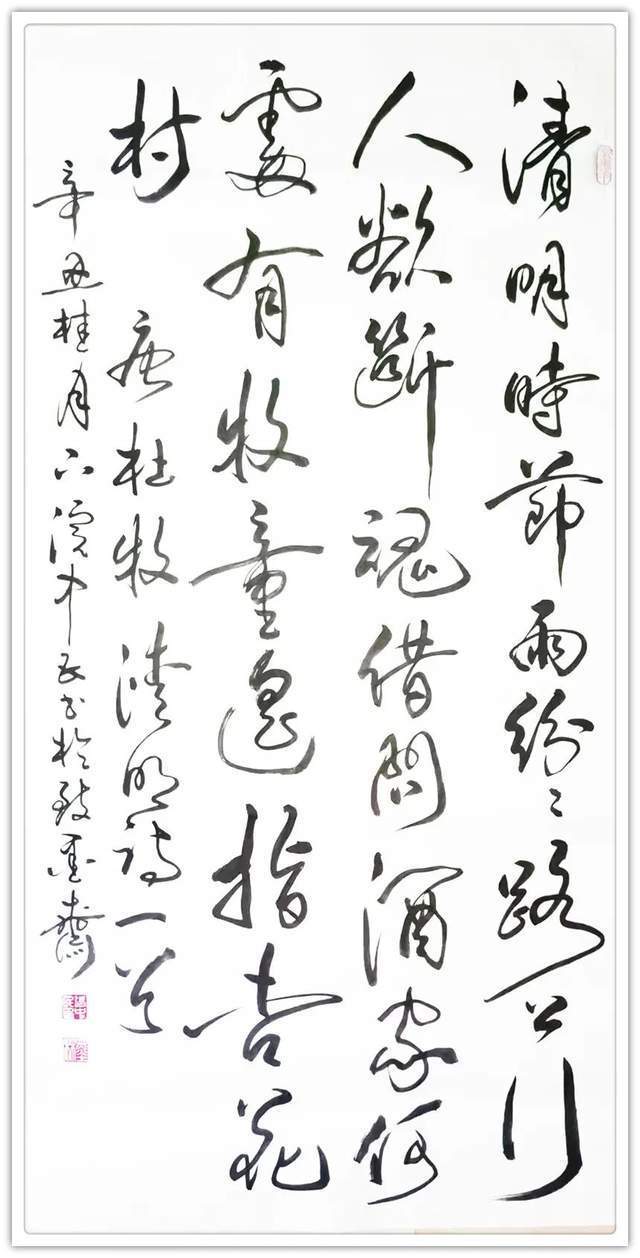 清明時節雨紛〻路上行
人欲斷魂借問酒家何
處有牧童遥指杏花
村 唐杜牧清明詩一首
辛丑桂月下浣中民书於墨齋